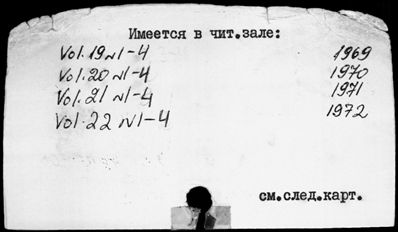 Имеется в чит.зале:
Vol.19 N1-4 1969
Vol.20 N1-4 1970
Vol.21 N1-4 1971
Vol.22 N1-4 1972
см.след.карт.